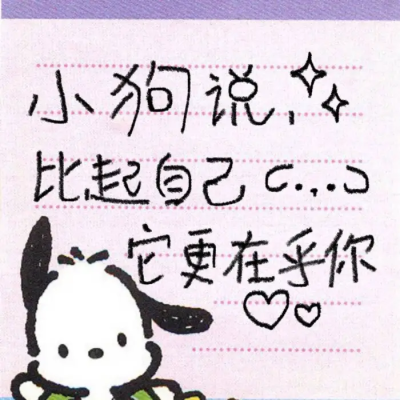 小狗说、
比起自己
它更在乎你